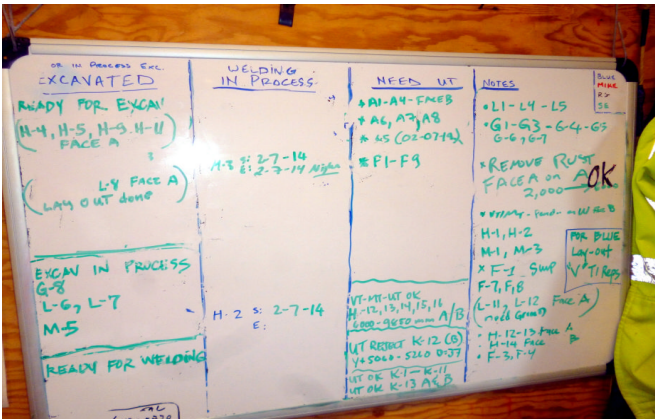 OR IN PROCESS EXC.
EXCAVATED
READY FOR EXCAV
(H-4, H-5, H-9, H-11)
FACE A
L-8 FACE A
LAY OUT done
EXCAV IN PROCESS
G-8
L-6, L-7
M-5
READY FOR WELDING
WELDING
IN PROCESS
H-3 S: 2-7-14
E: 2-7-14 Nights
H-2 S: 2-7-14
E:
NEED UT
A1-A4-FACE B
A6, A7, A8
F1-F9
VT-MT-UT OK
H-12, 13, 14, 15, 16
6000-9850 mm A/B
UT REJECT K-12 (B)
UT OK K-1-K-11
UT OK K-13 A & B
NOTES
L1-L4-L5
G1-G3-G-4-G5
G-6, G-7
REMOVE RUST
FACE A on A
2,000 OK
H-1, H-2
M-1, M-3
F-1
F-7, F, 8
(L-11, L-12 Face A)
H-12-13 Face A
H-14 Face B
F-3, F-4
BLUE
MIKE
FOR BLUE
Lay-out